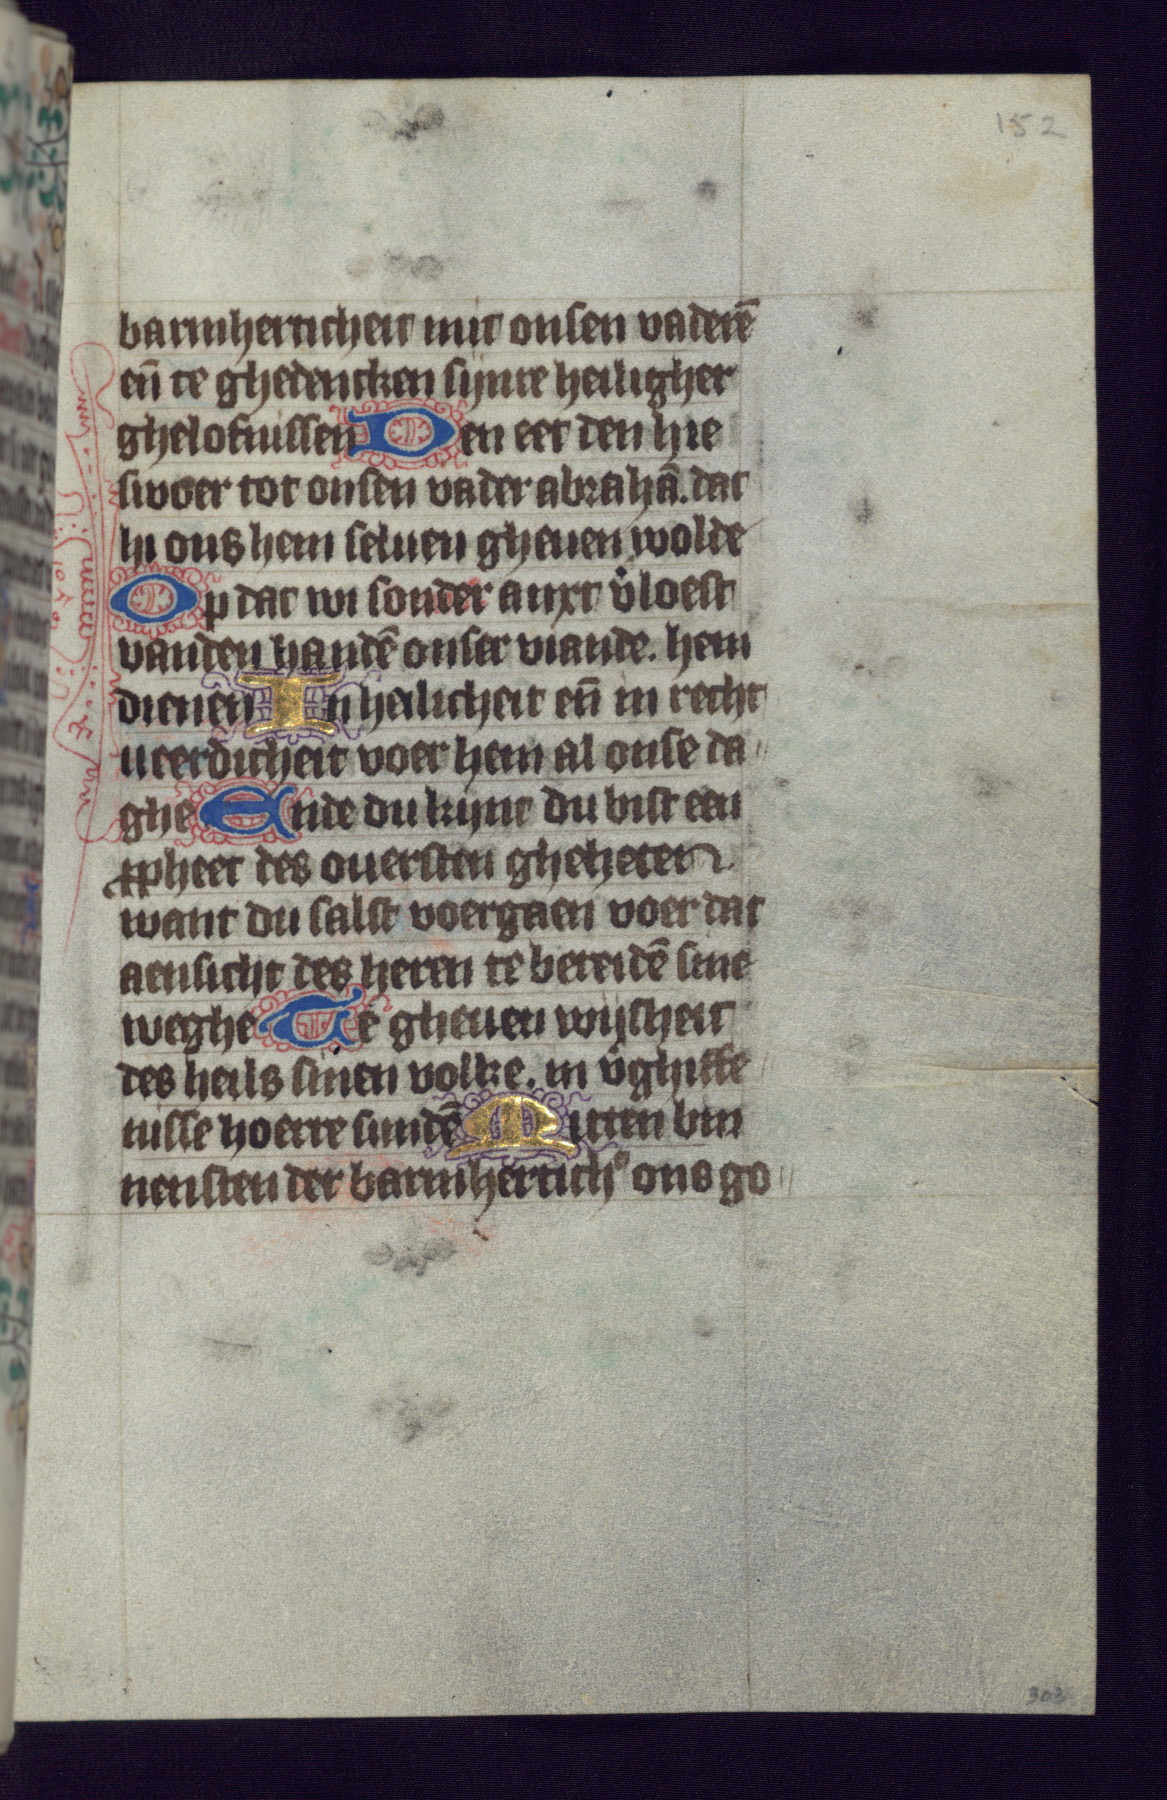 152
barmherticheit mit onsen vaderē
eñ te ghedencken sijnre heiligher
ghelofnissen Den eet den hie
swoer tot onsen vader abrahā. dat
hi ons hem seluen gheuen wolde
Op dat wi sonder anxt v̄loest
vanden handē onser viande. hem
dienen In heilicheit eñ in recht
ueerdicheit voer hem al onse da
ghe Ende du kijnt du bist een
ꝓpheet des ouersten gheheten
want du salst voergaen voer dat
aensicht des heren te bereidē sine
weghe Te gheuen wijsheit
des heils sinen volke. in v̄ghiffe
nisse hoerre sundē Mitten bin
nensten der barmhertich⁹ ons go
303